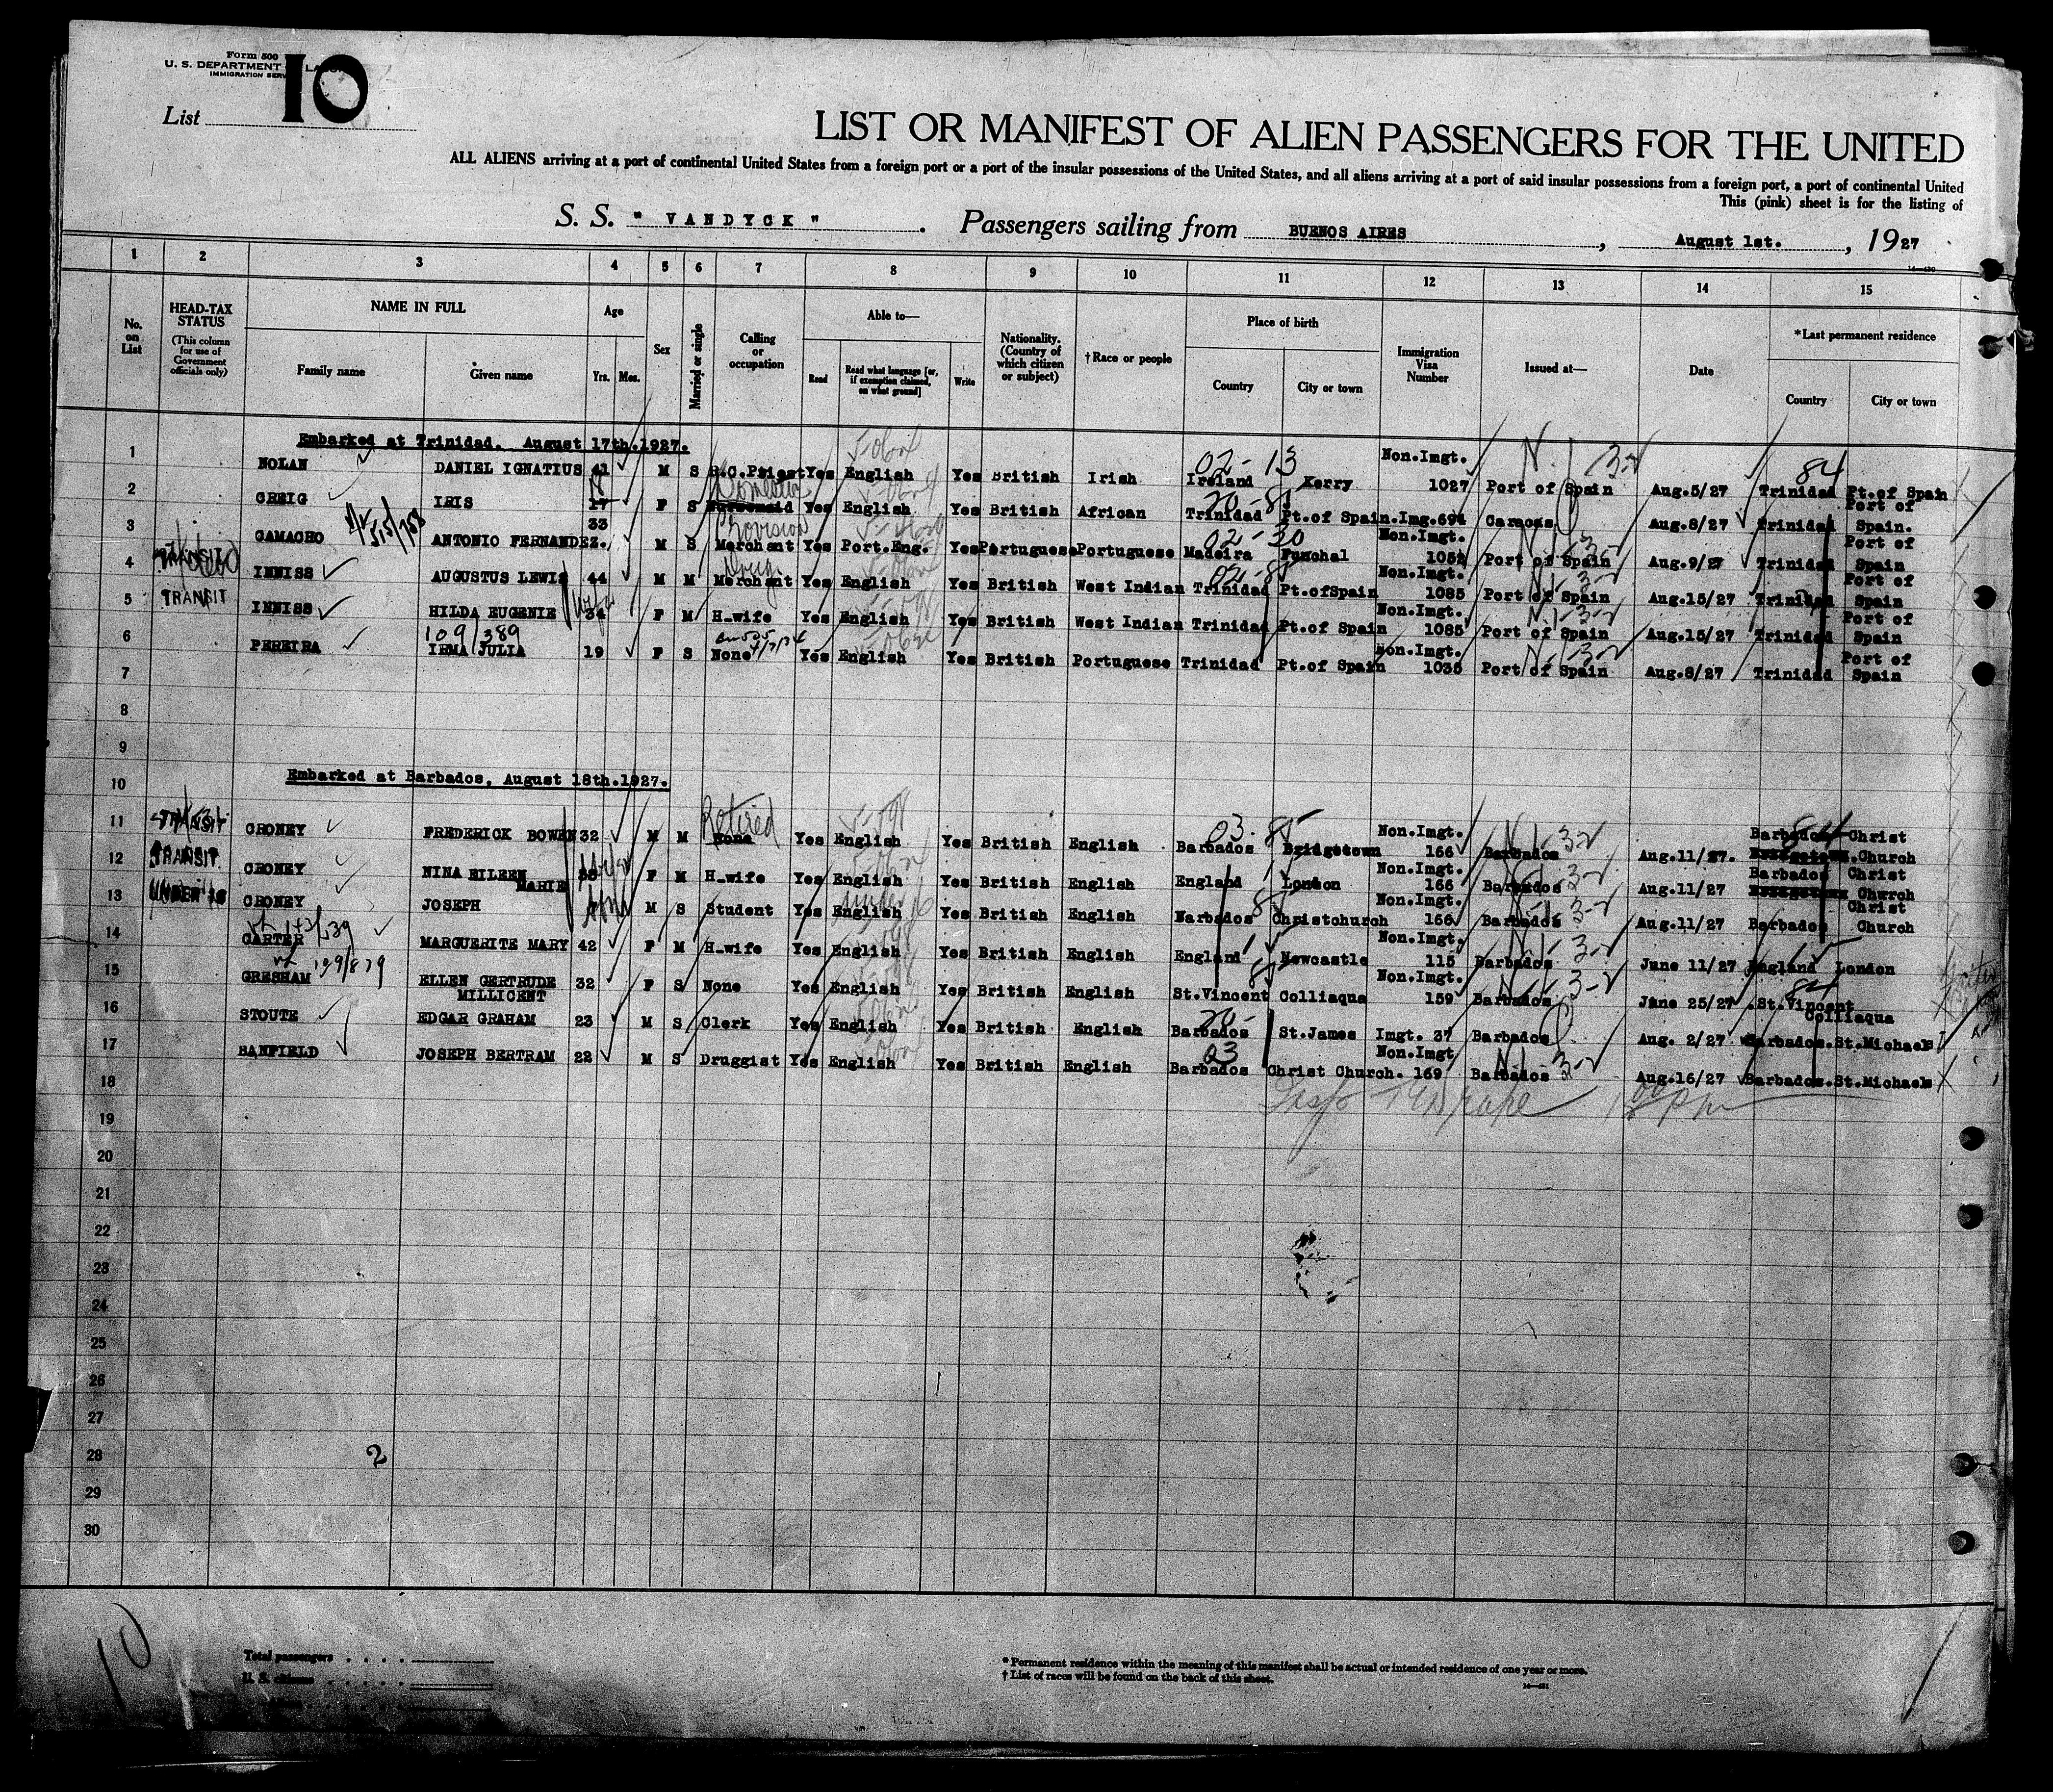 Form 500
U. S. DEPARTMENT LABOR
IMMIGRATION SERV
List 10
LIST OR MANIFEST OF ALIEN PASSENGERS FOR THE UNITED
ALL ALIENS arriving at a port of continental United States from a foreign port or a port of the insular possessions of the United States, and all aliens arriving at a port of said insular possessions from a foreign port, a port of continental United
This (pink) sheet is for the listing of
S. S. " VANDYCK " . Passengers sailing from BUENOS AIRES , August 1st. , 1927
14—430
1 2 3 4 5 6 7 8 9 10 11 12 13 14 15
No. on List
HEAD-TAX STATUS (This column for use of Government officials only)
NAME IN FULL
Family name Given name
Age
Yrs. Mos.
Sex
Married or single
Calling or occupation
Able to—
Read Read what language [or, if exemption claimed, on what ground] Write
Nationality. (Country of which citizen or subject)
†Race or people
Place of birth
Country City or town
Immigration Visa Number
Issued at—
Date
*Last permanent residence
Country City or town
Embarked at Trinidad. August 17th.1927.
1 NOLAN DANIEL IGNATIUS 41 M S R.C.Priest Yes English Yes British Irish 02-13 Ireland Kerry Non.Imgt. 1027 Port of Spain Aug.5/27 84 Trinidad Pt.of Spain
2 CREIG IRIS 17 F S Domestic Yes English Yes British African Trinidad Pt.of Spain. Img.694 Caracas Aug.8/27 Trinidad Port of Spain.
3 CAMACHO ANTONIO FERNANDEZ. 33 M S Provision Merchant Yes Port.Eng. Yes Portuguese Portuguese 02-30 Madeira Funchal Non.Imgt. 1052 Port of Spain Aug.9/27 Trinidad Port of Spain
4 INNISS AUGUSTUS LEWIS 44 M M Drug Merchant Yes English Yes British West Indian Trinidad Pt.ofSpain Non.Imgt. 1085 Port of Spain Aug.15/27 Trinidad Port of Spain
5 TRANSIT INNISS HILDA EUGENIE wife 34 F M H-wife Yes English Yes British West Indian Trinidad Pt.of Spain Non.Imgt. 1085 Port of Spain Aug.15/27 Trinidad Port of Spain
6 PEREIRA 109/389 IRMA JULIA 19 F S None Yes English Yes British Portuguese Trinidad Pt.of Spain Non.Imgt. 1035 Port of Spain Aug.8/27 Trinidad Port of Spain
7
8
9
10 Embarked at Barbados, August 18th.1927.
11 TRANSIT CRONEY FREDERICK BOWEN 32 M M Retired None Yes English Yes British English 03 Barbados Bridgetown Non.Imgt. 166 Barbados Aug.11/27. Barbados Christ Church
12 TRANSIT CRONEY NINA EILEEN MARIE F M H-wife Yes English Yes British English England London Non.Imgt. 166 Barbados Aug.11/27 Barbados Christ Church
13 UNDER 16 CRONEY JOSEPH M S Student Yes English Yes British English Barbados Christchurch Non.Imgt. 166 Barbados Aug.11/27 Barbados Christ Church
14 CARTER MARGUERITE MARY 42 F M H-wife Yes English Yes British English England Newcastle Non.Imgt. 115 Barbados June 11/27 England London
15 GRESHAM ELLEN GERTRUDE MILLICENT 32 F S None Yes English Yes British English St.Vincent Colliaqua Non.Imgt. 159 Barbados June 25/27 84 St.Vincent Colliaqua
16 STOUTE EDGAR GRAHAM 23 M S Clerk Yes English Yes British English 20- Barbados St.James Imgt. 37 Barbados Aug. 2/27 Barbados.St.Michaels
17 BANFIELD JOSEPH BERTRAM 22 M S Druggist Yes English Yes British English 03 Barbados Christ Church. Non.Imgt 169 Barbados Aug.16/27 Barbados.St.Michaels
18
19
20
21
22
23
24
25
26
27
28 2
29
30
10
Total passengers
U. S. citizens
* Permanent residence within the meaning of this manifest shall be actual or intended residence of one year or more.
† List of races will be found on the back of this sheet.
14—431